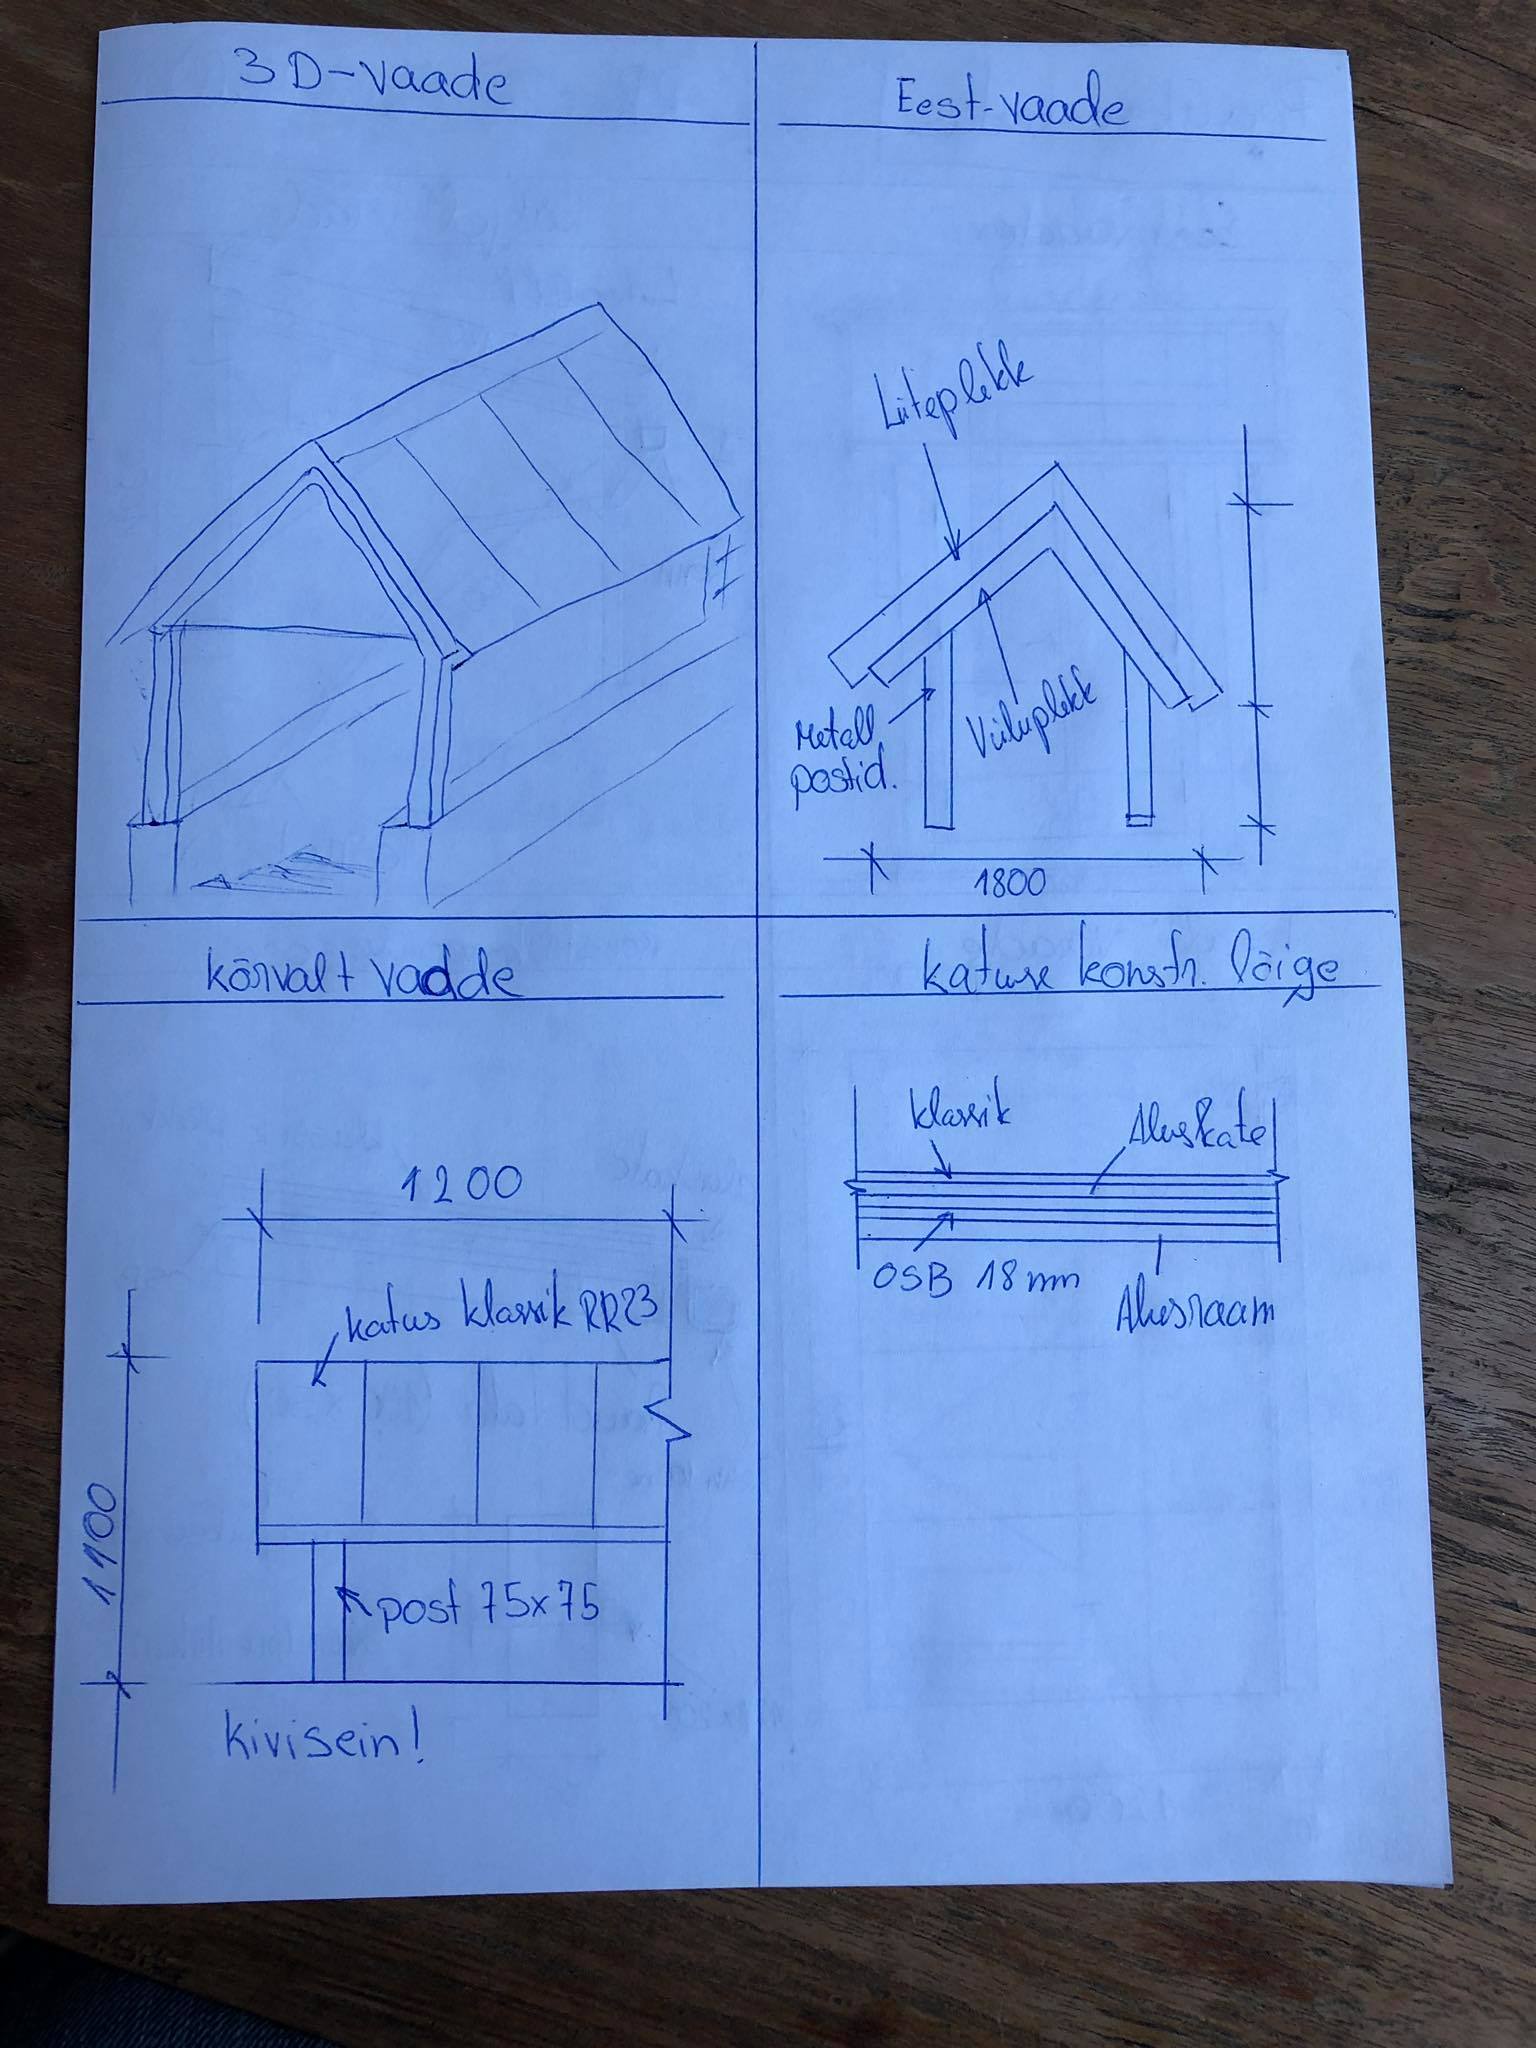 3D-vaade
Eest-vaade
Liiteplekk
Metall
postid.
Viiluplekk
1800
kõrvalt vaade
katuse konstr. lõige
1200
katus klassik RR23
1100
post 75x75
kivisein!
klassik
Aluskate
OSB 18mm
Alusraam